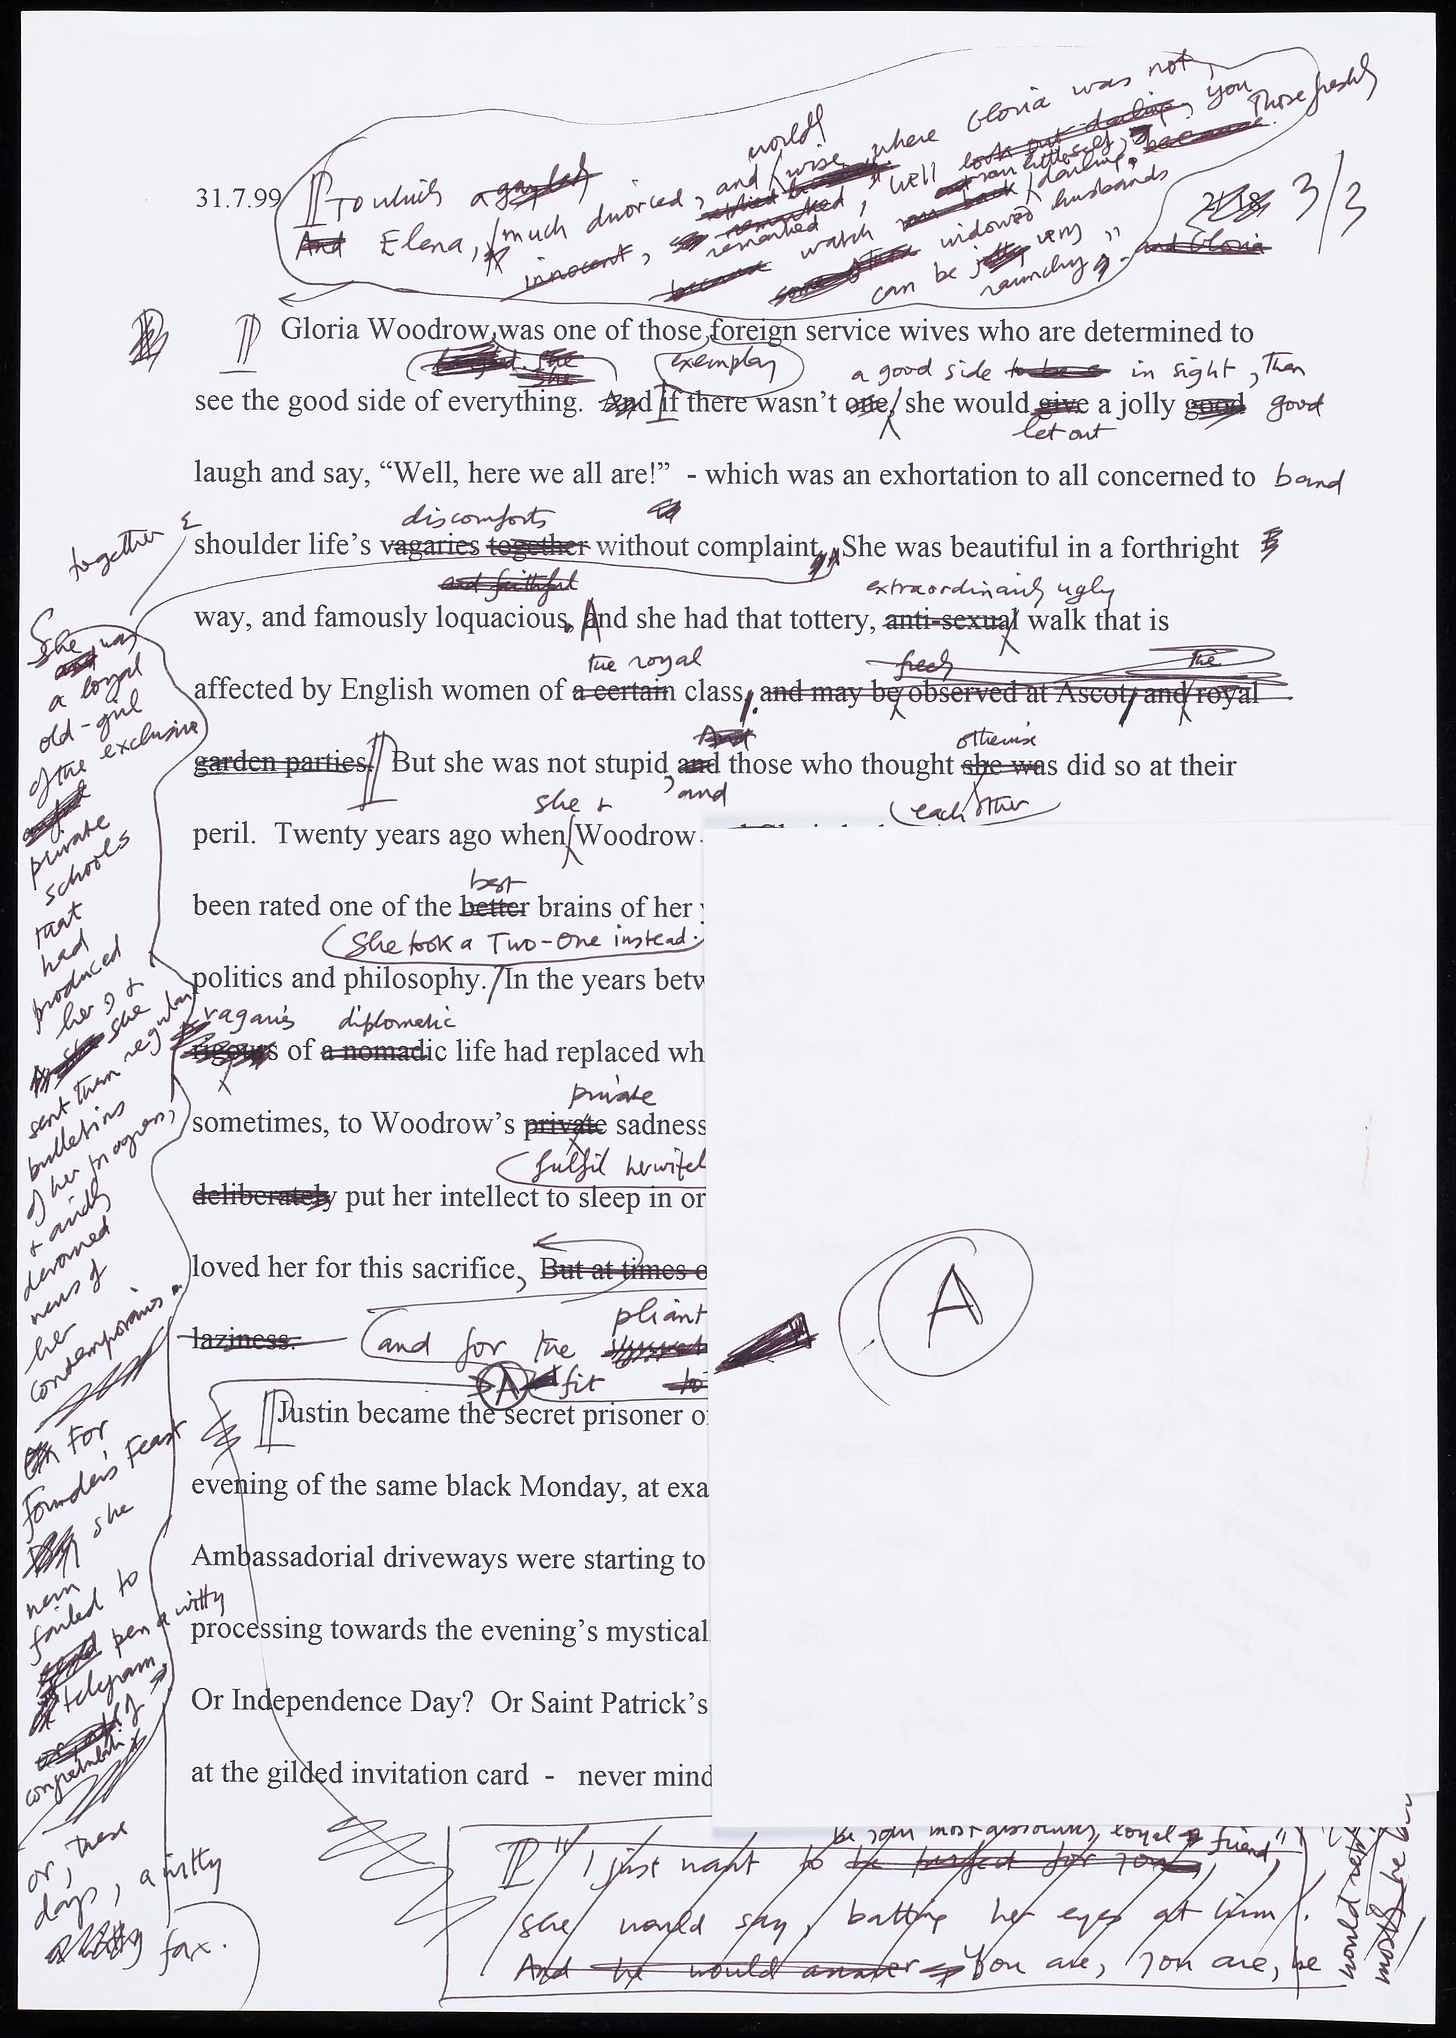 31.7.99
To which a gayish
world
And Elena, much divorced, and wise where Gloria was not,
innocent, remarked, "Well look out darling, you
watch darling. Those freshly
widowed husbands
can be very
raunchy." and Gloria
2/18 3/3
Gloria Woodrow, was one of those foreign service wives who are determined to
she exemplary a good side to be in sight, then
see the good side of everything. And if there wasn't one, she would give a jolly good good
let out
laugh and say, "Well, here we all are!" - which was an exhortation to all concerned to band
together &
discomforts
shoulder life's vagaries together without complaint. She was beautiful in a forthright
and faithful extraordinarily ugly
way, and famously loquacious, And she had that tottery, anti-sexual walk that is
the royal freely the
affected by English women of a certain class, and may be observed at Ascot, and royal
And otherwise
garden parties. But she was not stupid, and those who thought she was did so at their
and
she & each other
peril. Twenty years ago when Woodrow
best
been rated one of the better brains of her
(She took a Two-One instead.
politics and philosophy. In the years betw
vagaries diplomatic
rigours of a nomadic life had replaced wh
private
sometimes, to Woodrow's private sadness
fulfil her wifel
deliberately put her intellect to sleep in or
loved her for this sacrifice, But at times o
pliant
laziness. and for the
A fit to
Justin became the secret prisoner o
evening of the same black Monday, at exa
Ambassadorial driveways were starting to
processing towards the evening's mystical
Or Independence Day? Or Saint Patrick's
at the gilded invitation card - never mind
A
She was
a loyal
old-girl
of the exclusive
private
schools
that
had
produced
her, &
she
sent them regular
bulletins
of her progress,
& avidly
devoured
news of
her
contemporaries
For
Founder's Feast
she
never
failed to
send pen a witty
telegram
of
or, these
days, a witty
fax.
be your most absolutely loyal friend"
"I just want to be perfect for you,
she would say, batting her eyes at him.
And he would answer You are, you are, he
would